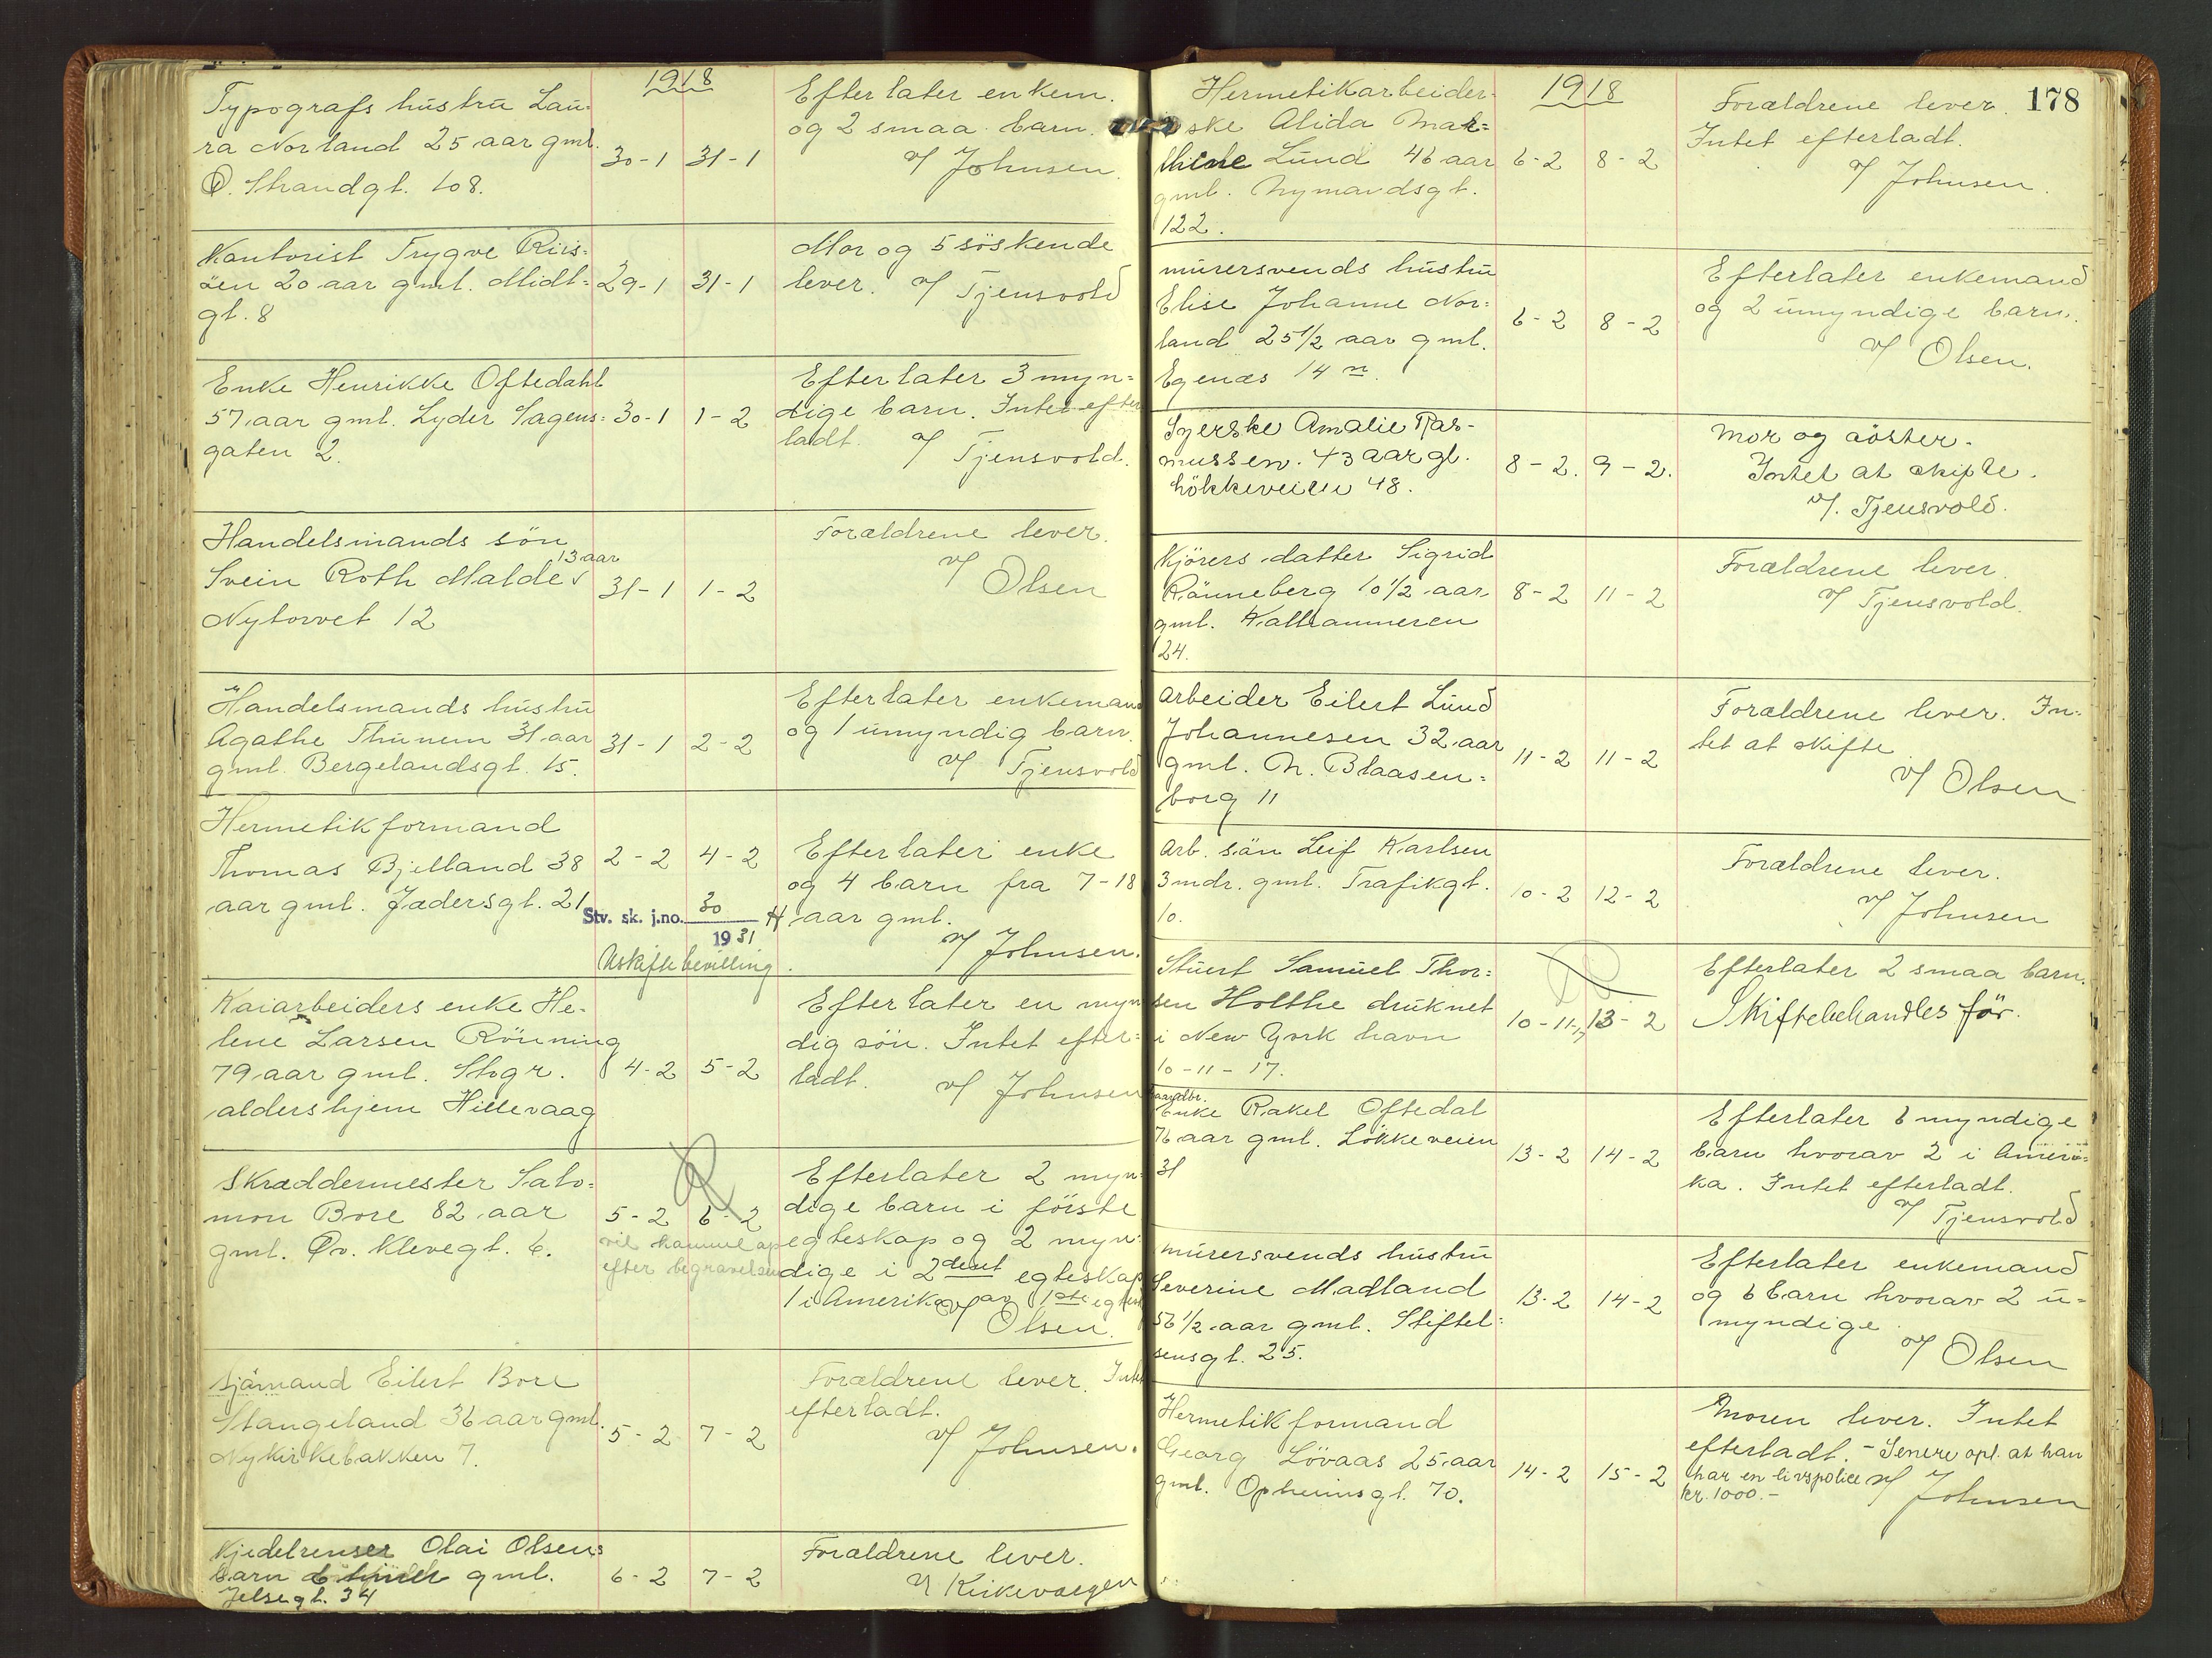 1918
Typografs hustru Lau-
ra Norland 25 aar gml.
Ø. Strandgt. 108.
30-1 31-1
Efterlater enkem.
og 2 smaa barn.
v/ Johnsen.
Kontorist Trygve Riis-
öen 20 aar gml. Midt-
gt. 8
29-1 31-1
Mor og 5 söskende
lever. v/ Tjensvold
Enke Henrikke Oftedahl
57 aar gml. Lyder Sagens-
gaten 2.
30-1 1-2
Efterlater 3 myn-
dige barn. Intet efter
ladt. v/ Tjensvold.
Handelsmands sön
13 aar
Svein Roth Malde
Nytorvet 12
31-1 1-2
Forældrene lever.
v/ Olsen
Handelsmands hustru
Agathe Thunem 31 aar
gml. Bergelandsgt. 15.
31-1 2-2
Efterlater enkemand
og 1 umyndig barn.
v/ Tjensvold
Hermetikformand
Thomas Bjelland 38
aar gml. Jædersgt. 21
2-2 4-2
Stv. sk. j.no. 30
1931
Uskiftebevilling.
Efterlater enke
og 4 barn fra 7-18
aar gml.
v/ Johnsen.
Kaiarbeiders enke He-
lene Larsen Rönning
79 aar gml. Stvgr.
aldershjem Hillevaag
4-2 5-2
Efterlater en myn
dig sön. Intet efter-
ladt. v/ Johnsen
Skræddermester Salo-
mon Bore 82 aar
gml. Øv. Klevegt. 6.
5-2 6-2
vil komme op
efter begravelsen
Efterlater 2 myn-
dige barn i förste
egteskap og 2 myn-
dige i 2det egteskap
1 i Amerika av 1ste egtesk
v/ Olsen.
Sjömand Eilert Bore
Stangeland 36 aar gml.
Nykirkebakken 7.
5-2 7-2
Forældrene lever. Intet
efterladt.
v/ Johnsen.
Kjedelrenser Olai Olsens
barn 6 gml.
Jelsegt. 34
6-2 7-2
Forældrene lever.
v/ Kirkevaagen
178
1918
Hermetikarbeider-
ske Alida Mar-
thine Lund 46 aar
gml. Nymandsgt.
122.
6-2 8-2
Forældrene lever.
Intet efterladt.
v/ Johnsen.
Murersvends hustru
Elise Johanne Nor-
land 25 1/2 aar gml.
Egenæs 14 n.
6-2 8-2
Efterlater enkemand
og 2 umyndige barn.
v/ Olsen.
Syerske Amalie Ras-
mussen. 43 aar gl.
Lökkeveien 48.
8-2. 9-2.
Mor og söster.
Intet at skifte.
v/. Tjensvold.
Kjörers datter Sigrid
Rönneberg 10 1/2 aar
gml. Kalhammeren
24.
8-2 11-2
Forældrene lever.
v/ Tjensvold.
Arbeider Eilert Lund
Johannesen 32 aar
gml. N. Blaasen-
borg 11
11-2 11-2
Forældrene lever. In-
tet at skifte
v/ Olsen
Arb. sön Leif Karlsen
3 mdr. gml. Trafikgt.
10.
10-2 12-2
Forældrene lever.
v/ Johnsen
Stuert Samuel Thor-
sen Holthe druknet
i New York havn
10-11-17.
10-11-17 13-2
Efterlater 2 smaa barn.
Skiftebehandles för.
Gaardbr.
Enke Rakel Oftedal
76 aar gml. Lökkeveien
31
13-2 14-2
Efterlater 6 myndige
barn hvorav 2 i Ameri-
ka. Intet efterladt.
v/ Tjensvold
Murersvends hustru
Severine Madland
56 1/2 aar gml. Stiftel-
sensgt. 25.
13-2 14-2
Efterlater enkemand
og 6 barn hvorav 2 u-
myndige
v/ Olsen
Hermetikformand
Georg Lövaas 25 aar
gml. Opheimsgt. 70.
14-2 15-2
Moren lever. Intet
efterladt. - Senere opl. at han
har en livspolice
kr. 1000.-
v/ Johnsen